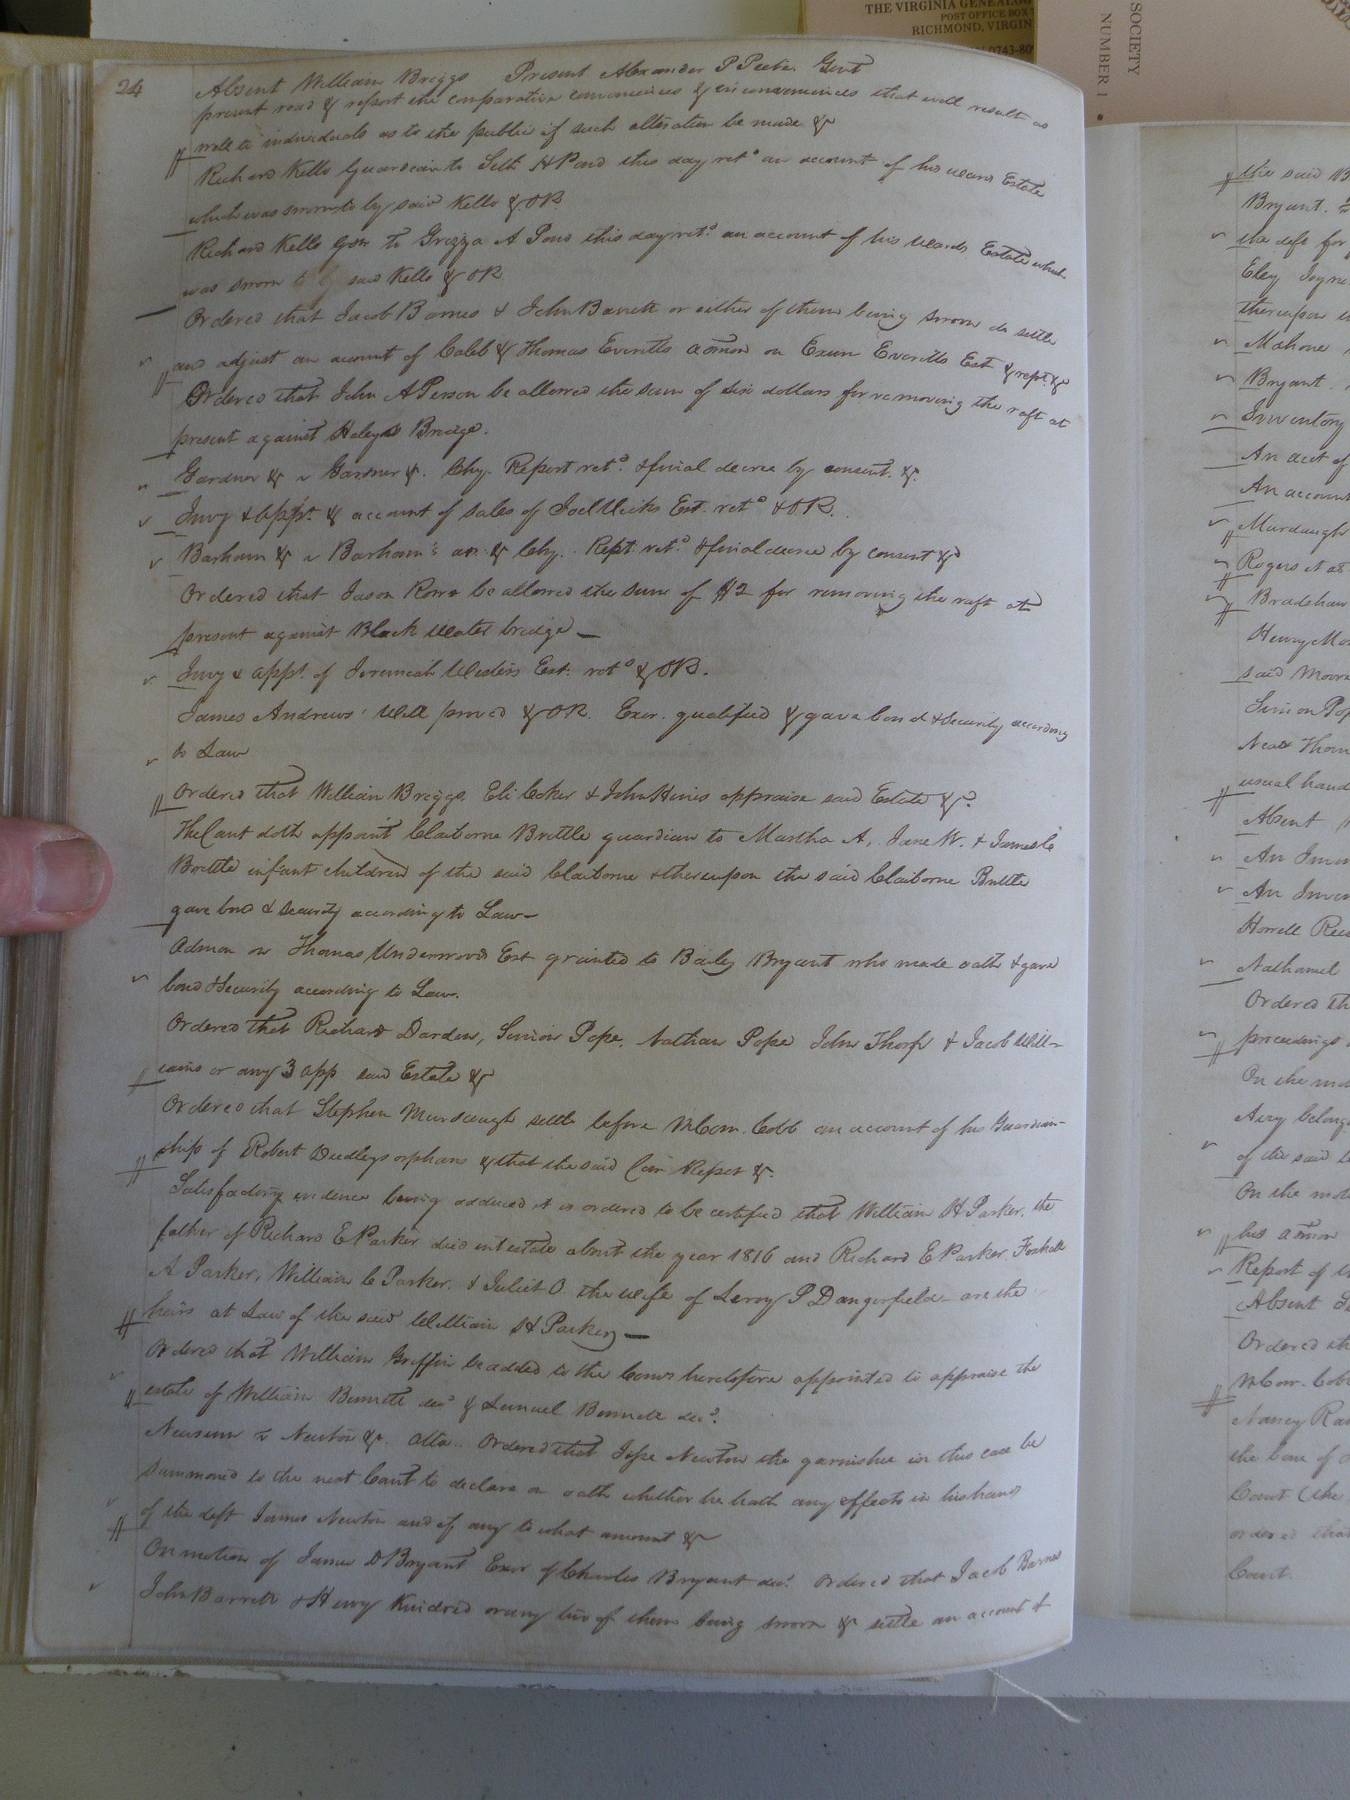 THE VIRGINIA GENEALOG
POST OFFICE BOX
RICHMOND, VIRGIN
0743-80
SOCIETY
NUMBER 1
24
Absent William Briggs Present Alexander P Peete Gent
present road & report the comparative conveniences & inconveniences that will result as
well to individuals as to the public if such alteration be made &
Richard Kello Guardian to Seth H Pond this day retd an account of his wards Estate
which was sworn to by said Kello & OR
Richard Kello Gdn to Grizza A Pond this day retd an account of his wards Estate which
was sworn to by said Kello & OR
Ordered that Jacob Barnes & John Barrett or either of them being sworn do settle
and adjust an account of Caleb & Thomas Everitts admon on Exum Everitts Est & rept &
Ordered that John A Person be allowed the sum of six dollars for removing the raft at
present against Haleys Bridge.
Gardner & v Gardner &. Chy. Report retd. & final decree by consent. &.
Invy & appt. & account of sales of Joel Weeks Est. retd & OR.
Barham & v Barham's &. Chy. Rept. retd. & final decree by consent &
Ordered that Jason Rowe be allowed the sum of $2 for removing the raft at
present against Black Water bridge
Invy & appt. of Jeremiah Westers Est. retd & OR.
James Andrews' Will proved & OR. Exor. qualified & gave bond & Security according
to Law
Ordered that William Briggs Eli Coker & John Hines appraise said Estate &.
The Court doth appoint Claiborne Brittle guardian to Martha A, Jane W. & James C
Brittle infant children of the said Claiborne & thereupon the said Claiborne Brittle
gave bond & security according to Law
Admon on Thomas Underwoods Est granted to Bailey Bryant who made oath & gave
bond & Security according to Law.
Ordered that Richard Darden, Simion Pope, Nathan Pope John Thorp & Jacob Will-
iams or any 3 app said Estate &
Ordered that Stephen Murdaugh settle before M Com. Cobb an account of his Guardian-
ship of Robert Dudleys orphans & that the said Com Report &.
Satisfactory evidence being adduced it is ordered to be certified that William H Parker, the
father of Richard E Parker died intestate about the year 1816 and Richard E Parker Foxhall
A Parker, William C Parker, & Juliet O. the wife of Leroy P Dangerfield are the
heirs at Law of the said William H Parker
Ordered that William Griffin be added to the Comrs heretofore appointed to appraise the
estate of William Bennett decd & Lemuel Bennett decd.
Newsum v Newton &. Atta. Ordered that Jesse Newton the garnishee in this case be
summoned to the next Court to declare on oath whether he hath any effects in his hands
of the deft James Newton and if any to what amount &
On motion of James D Bryant Exor of Charles Bryant decd. Ordered that Jacob Barnes
John Barrett & Henry Kindred or any two of them being sworn & settle an account &
the said B
Bryant.
the deft for
Eley Joyne
thereupon
Mahone
Bryant
Inventory
An acct of
An account
Murdaugh
Rogers et al
Bradshaw
Henry Moo
said Moore
Simion Pop
Neal Thom
usual hand
Absent
An Inve
An Inven
Howell Ree
Nathaniel
Ordered th
proceedings
On the mo
Avey belong
of the said
On the mot
his admon
Report of
Absent
Ordered th
M Com. Cob
Nancy Ra
the case of
Court (the
ordered that
Court.